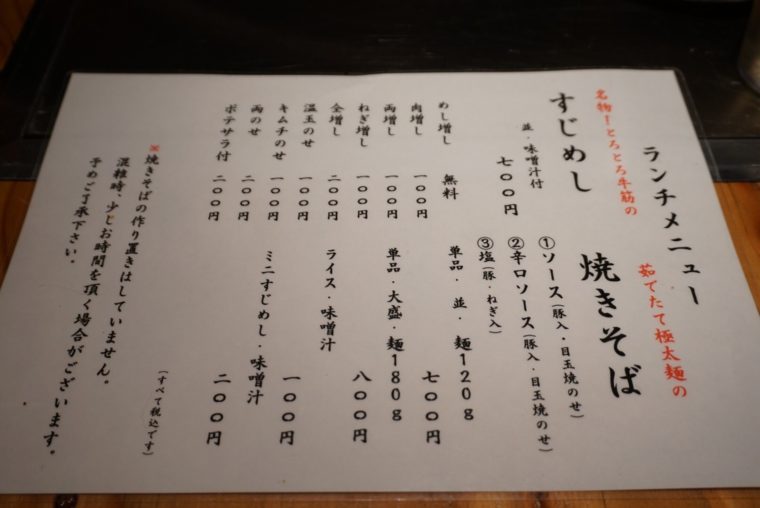 ランチメニュー
名物!とろとろ牛筋の
すじめし
並・味噌汁付
七〇〇円
めし増し 無料
肉増し 一〇〇円
両増し 一〇〇円
ねぎ増し 一〇〇円
全増し 二〇〇円
温玉のせ 一〇〇円
キムチのせ 一〇〇円
両のせ 二〇〇円
ポテサラ付 二〇〇円
茹でたて極太麺の
焼きそば
①ソース(豚入・目玉焼のせ)
②辛口ソース(豚入・目玉焼のせ)
③塩(豚・ねぎ入)
単品・並・麺120g
七〇〇円
単品・大盛・麺180g
八〇〇円
ライス・味噌汁
一〇〇円
ミニすじめし・味噌汁
二〇〇円
(すべて税込です)
※焼きそばの作り置きはしていません。
混雑時、少しお時間を頂く場合がございます。
予めご了承下さい。